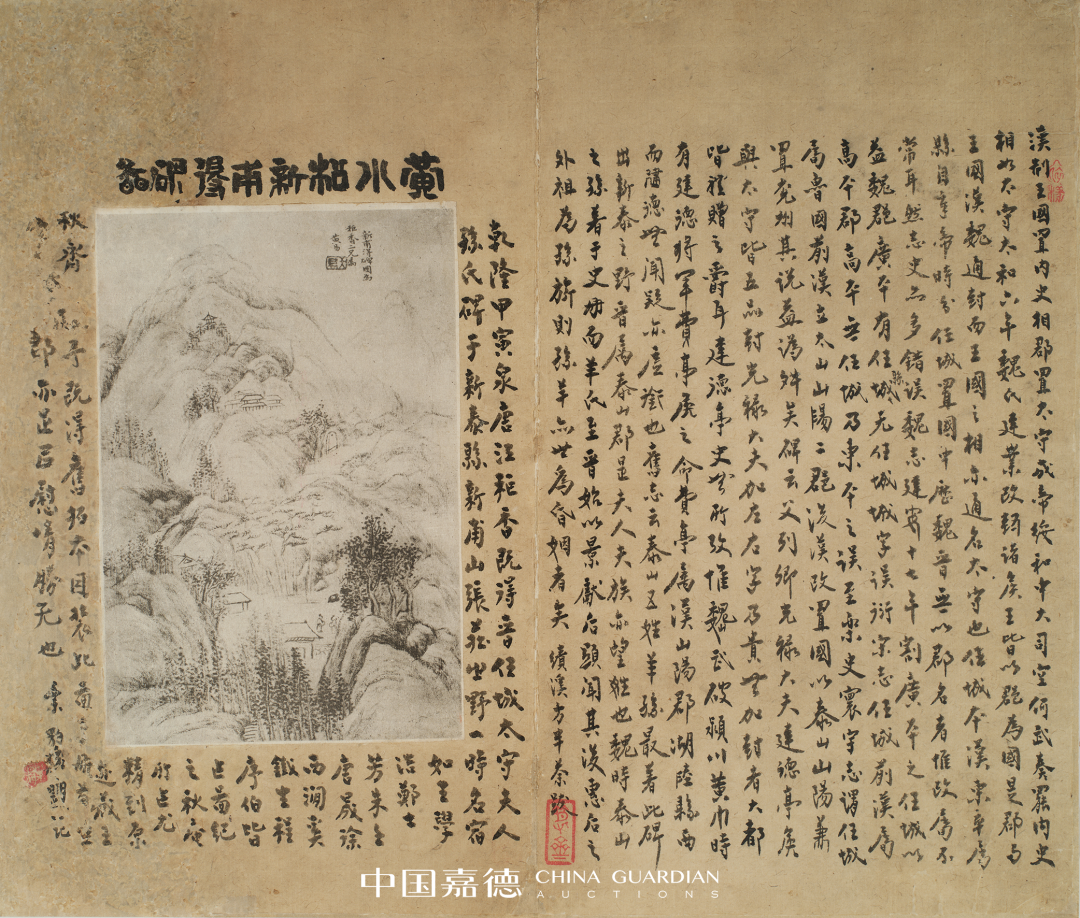 漢制王國置內史相郡置太守成帝綏和中大司空何武奏罷內史
相如太守太和六年魏氏建業改輯諸侯王皆以郡為國是郡與
王國漢魏通封而王國之相亦通名太守也任城本漢東平屬
縣自章帝時分任城置國中歷魏晉無以郡名者惟改屬不
常耳然志史亦多錯誤魏志建安十七年割廣平之任城以
益魏郡廣平有任縣無任城城字誤衍宋志任城前漢屬
高平郡高平無任城乃東平之誤至樂史寰宇志謂任城
屬魯國前漢立太山山陽二郡後漢改置國以泰山山陽兼
置兗州其說益為舛矣碑云父列卿光祿大夫建德亭侯
與太守皆五品封光祿大夫加左右字乃貴無加封者大都
皆禮贈之爵耳建德亭史無所考惟魏武破潁川黃巾時
有建德將軍費亭侯之命費亭屬漢山陽郡湖陸縣西
而建德無聞疑亦虛銜也舊志云泰山五姓羊孫最著此碑
出新泰之野晉屬泰山郡是夫人夫族亦望姓也魏時泰山
之孫著于史冊而羊氏至晉始以景獻后顯聞其後惠后之
外祖為孫旂則孫羊亦世為昏姻者矣 績溪方車 跋
黃水松新甫得碑圖
新甫得碑圖為
秬香二兄
乾隆甲寅泉唐江秬香既得晉任城太守夫人
孫氏碑于新泰縣新甫山張莊也野一時名宿
如王學
浩鄭士
芳朱壬
唐晟徐
而澗奚
鐵生程
序伯皆
已圖紀
之秋庵
所占尤
精到原
秋齋
予既得舊拓本因裝此圖
郡亦足以慰情勝无也
記
中国嘉德 CHINA GUARDIAN
AUCTIONS